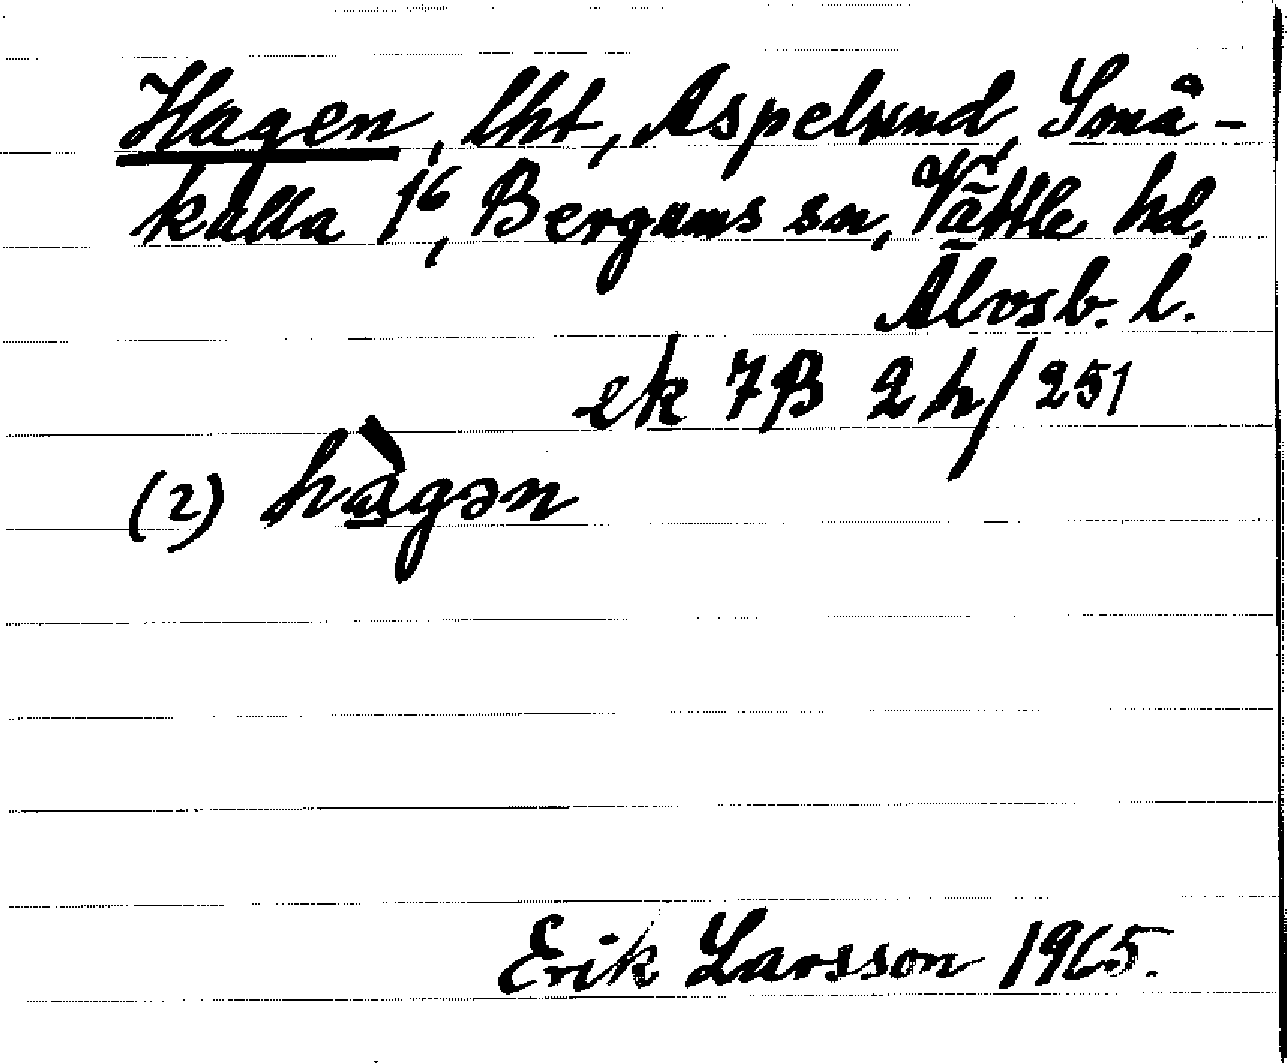 Hagen, lht, Aspelund, Små-
kulla 1⁶, Bergums sn, Vättle hd,
Älvsb. l.
ek 7B 2h/251
(2) hàgən
Erik Larsson 1965.